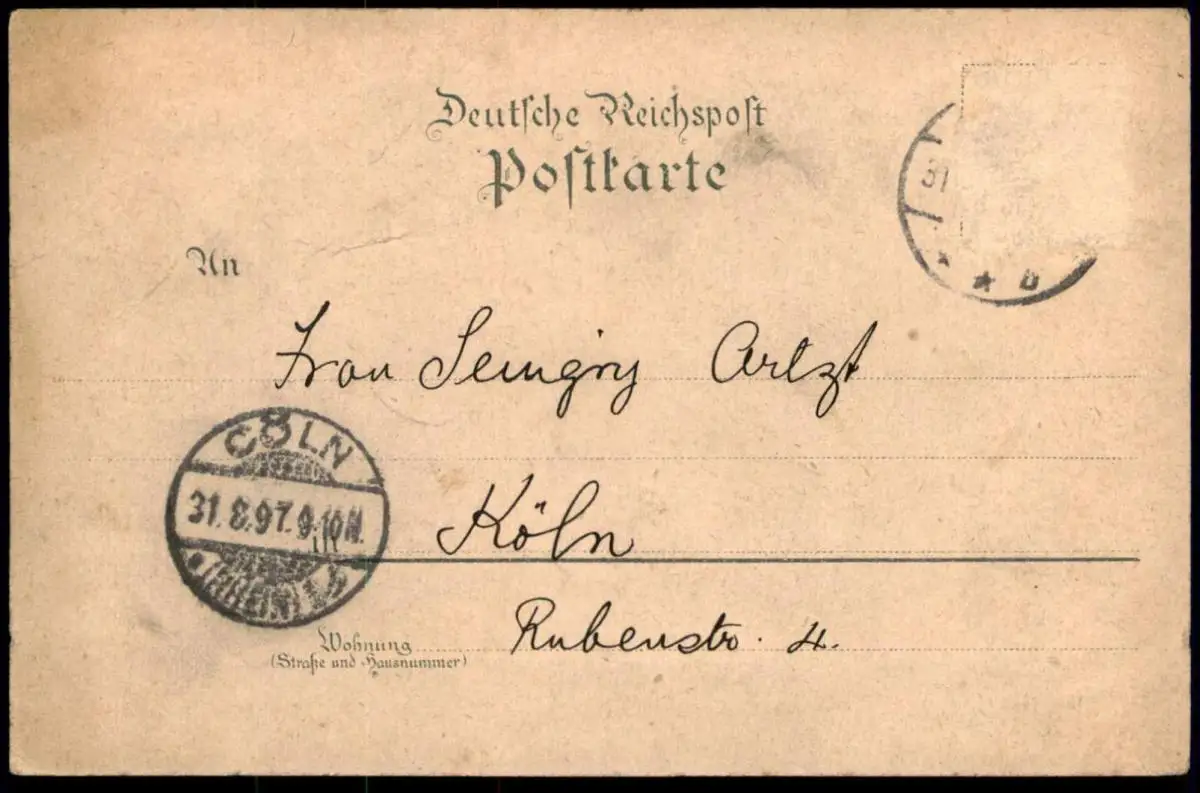 Deutsche Reichspost
Postkarte
31
* * b
An
Frau Artzt
CÖLN
31.8.97. 9-10N.
(RHEIN)
Köln
Rubenstr. 4.
Wohnung
(Straße und Hausnummer)